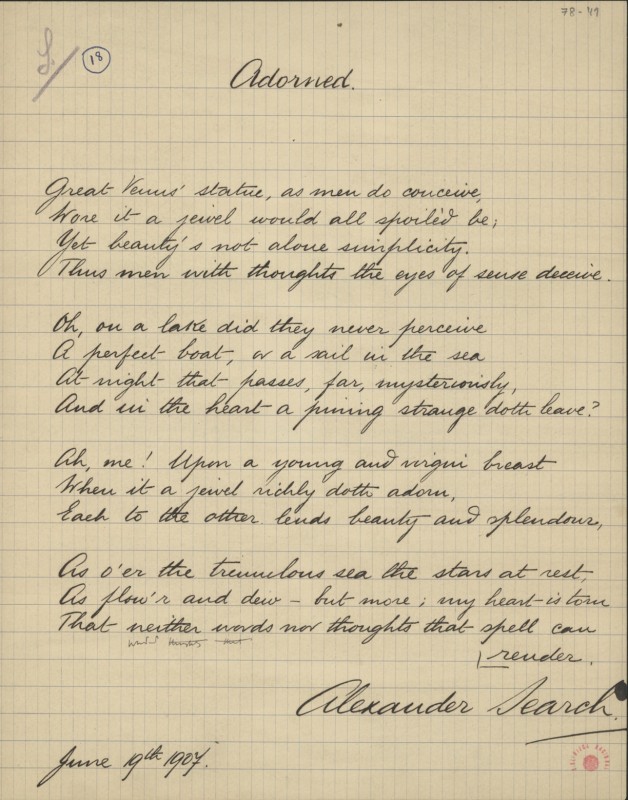 78-49
18
Adorned.
Great Venus' statue, as men do conceive,
Wore it a jewel would all spoilèd be;
Yet beauty's not alone simplicity.
Thus men with thoughts the eyes of sense deceive.
Oh, on a lake did they never perceive
A perfect boat, or a sail in the sea
At night that passes, far, mysteriously,
And in the heart a pining strange doth leave?
Ah, me! Upon a young and virgin breast
When it a jewel richly doth adorn,
Each to the other lends beauty and splendour,
As o'er the tremulous sea the stars at rest,
As flow'r and dew – but more; my heart is torn
That neither words nor thoughts that spell can
render.
Alexander Search.
June 19th 1907.